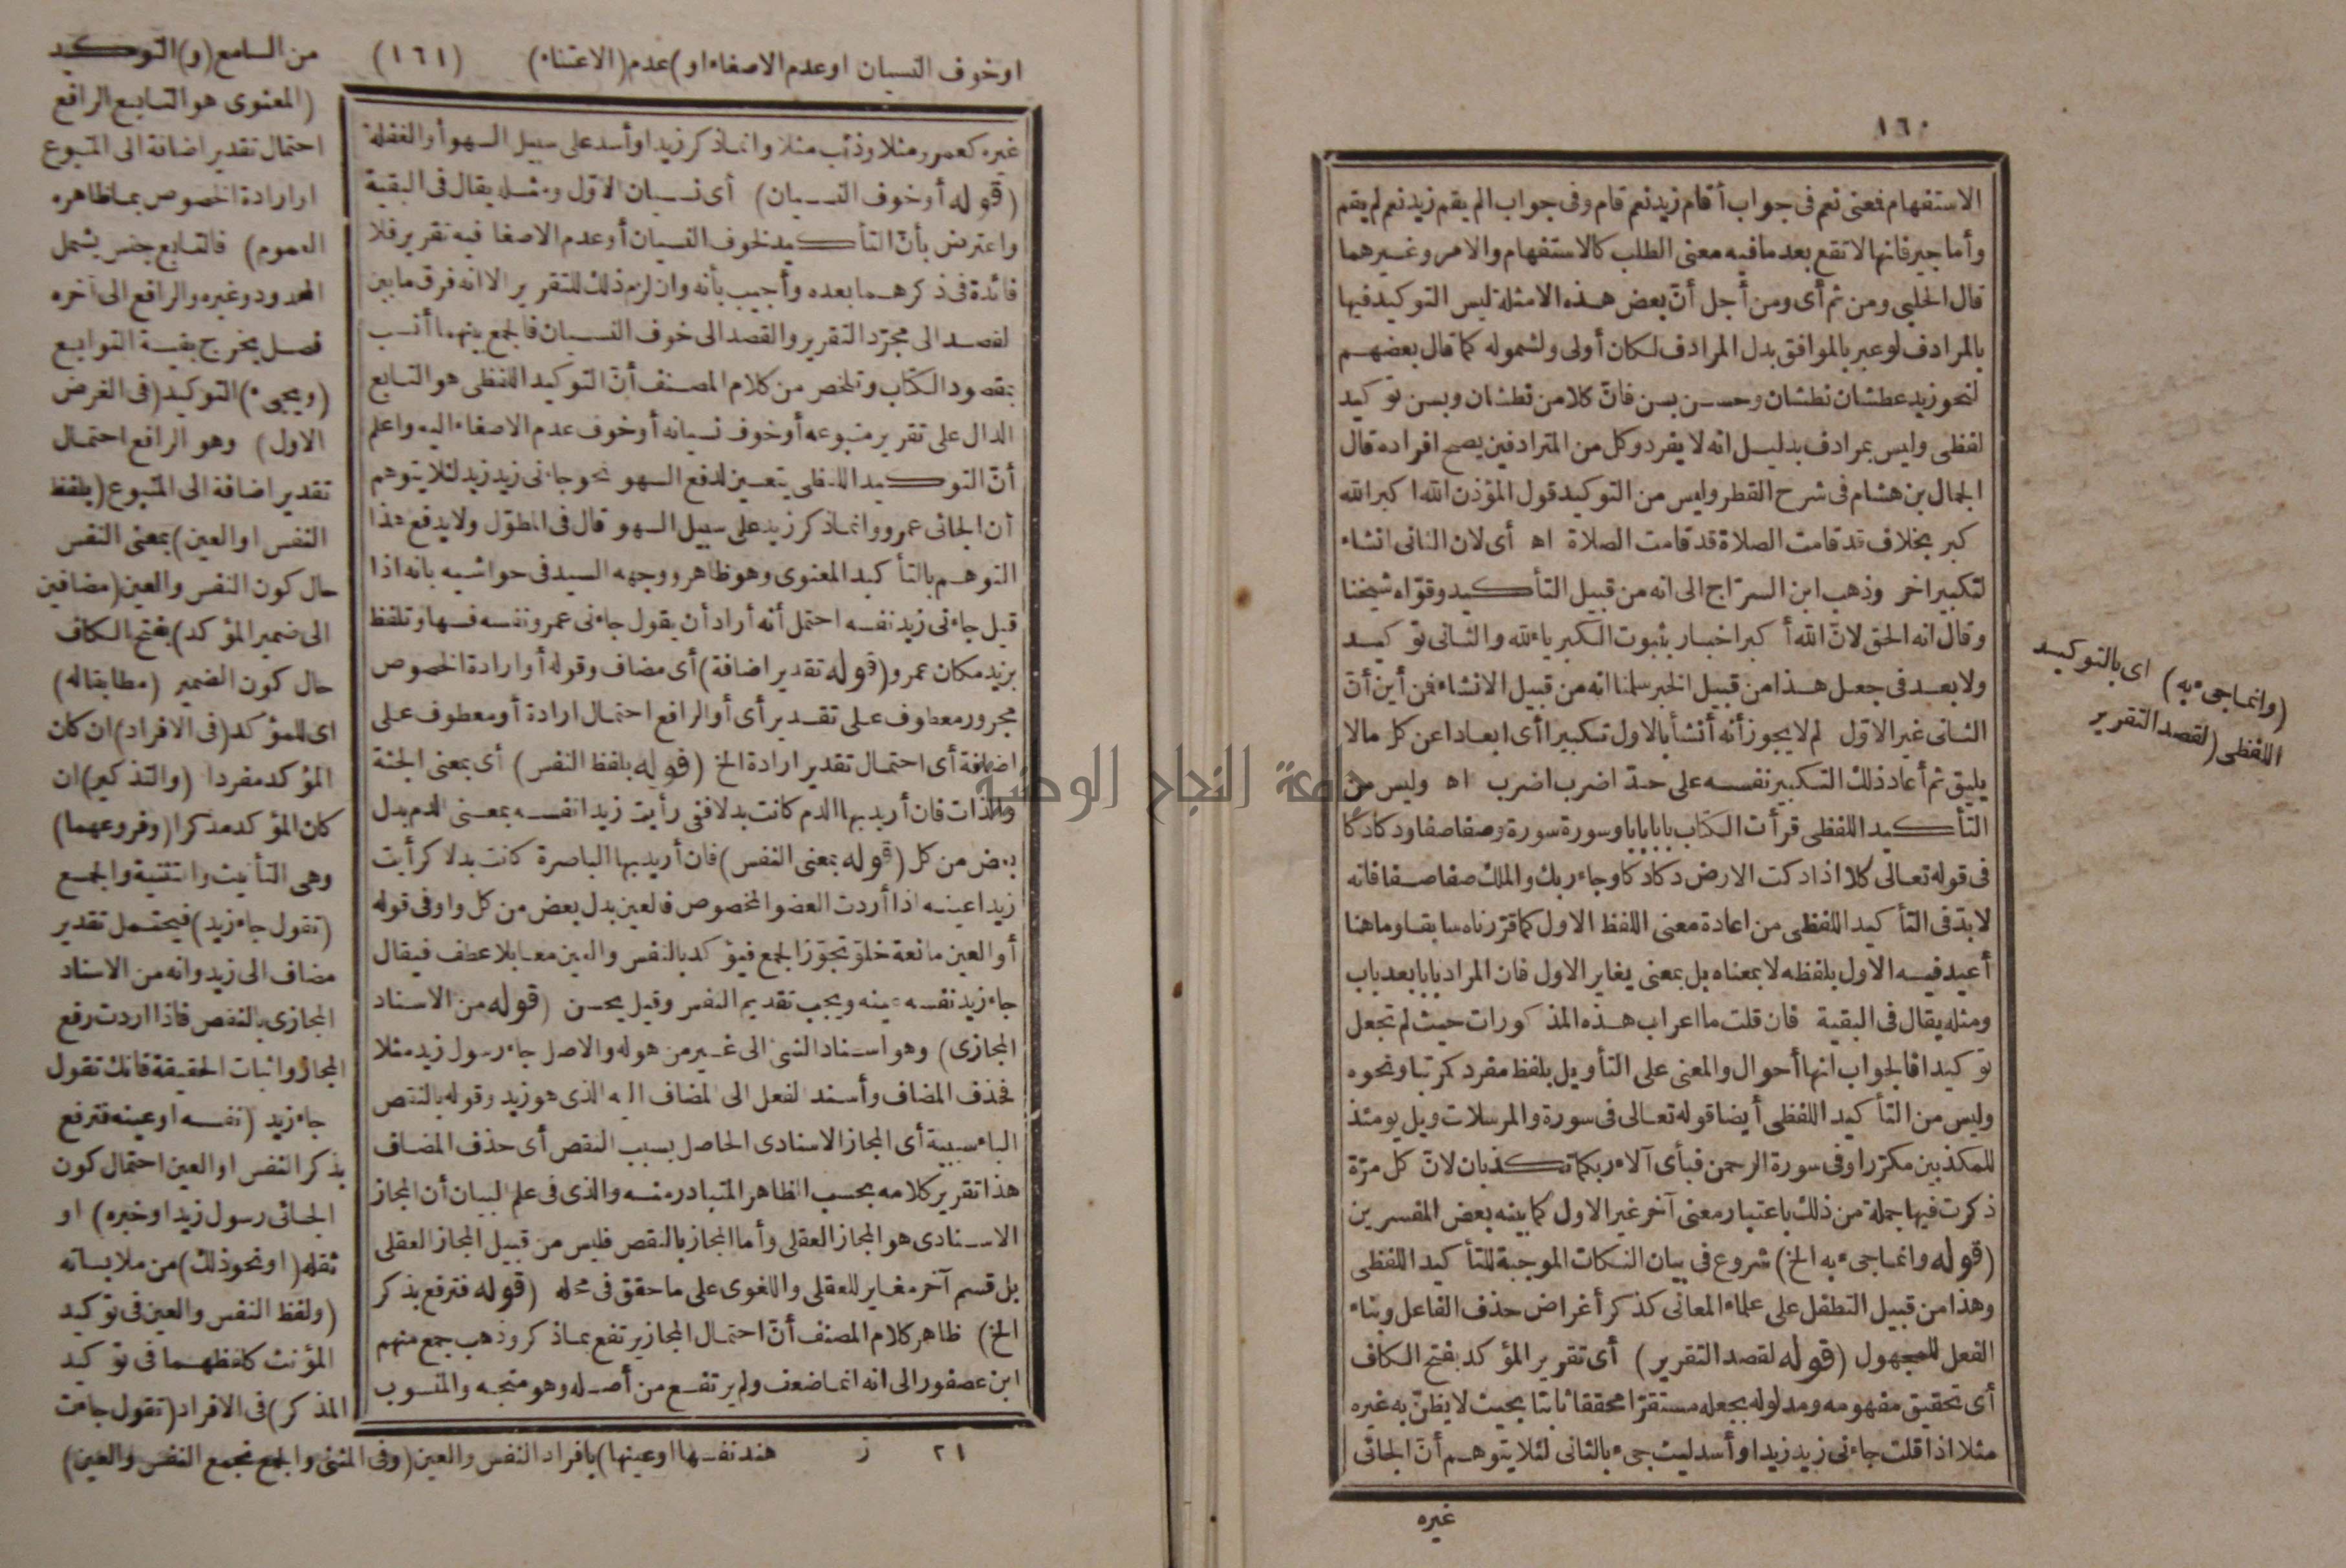 ١٦٠
الاستفهام فمعنى نعم فى جواب أقام زيد نعم قام وفى جواب الم يقم زيد نعم لم يقم
وأما جير فانها لا تقع بعد ما فيه معنى الطلب كالاستفهام والامر وغيرهما
قال الحلبى ومن ثم أى ومن أجل أنّ بعض هذه الامثلة ليس التوكيد فيها
بالمرادف لو عبر بالموافق بدل المرادف لكان أولى ولشموله كما قال بعضهم
لنحو زيد عطشان نطشان وحسن بسن فانّ كلا من نطشان وبسن توكيد
لفظى وليس بمرادف بدليل انه لا يفرد وكل من المترادفين يصح افراده قال
الجمال بن هشام فى شرح القطر وليس من التوكيد قول المؤذن الله اكبر الله
كبر بخلاف قد قامت الصلاة قد قامت الصلاة اه أى لان الثانى انشاء
لتكبير اخر وذهب ابن السرّاج الى انه من قبيل التأكيد وقوّاه شيخنا
وقال انه الحق لانّ الله أكبر اخبار بثبوت الكبرياء لله والثانى توكيد
ولا بعد فى جعل هذا من قبيل الخبر سلمنا انه من قبيل الانشاء فمن أين أنّ
الثانى غير الاوّل لم لا يجوز أنه أنشأ بالاول تكبيرا أى ابعادا عن كل ما لا
يليق ثم أعاد ذلك التكبير نفسه على حدّ اضرب اضرب اه وليس من
التأكيد اللفظى قرأت الكتاب بابا بابا وسورة سورة وصفا صفا ودكا دكا
فى قوله تعالى كلا اذا دكت الارض دكا دكا وجاء ربك والملك صفا صفا فانه
لا بدّ فى التأكيد اللفظى من اعادة معنى اللفظ الاول كما قرّرناه سابقا وما هنا
أعيد فيه الاول بلفظه لا بمعناه بل بمعنى يغاير الاول فان المراد بابا بعد باب
ومثله يقال فى البقية فان قلت ما اعراب هذه المذكورات حيث لم تجعل
توكيدا فالجواب انها أحوال والمعنى على التأويل بلفظ مفرد كمرتبا ونحوه
وليس من التأكيد اللفظى أيضا قوله تعالى فى سورة والمرسلات ويل يومئذ
للمكذبين مكرّرا وفى سورة الرحمن فبأى آلاء ربكما تكذبان لانّ كل مرّة
ذكرت فيها جملة من ذلك باعتبار معنى آخر غير الاول كما بينه بعض المفسرين
(قوله وانما جىء به الخ) شروع فى بيان النكات الموجبة للتأكيد اللفظى
وهذا من قبيل التطفل على علماء المعانى كذكر أغراض حذف الفاعل وبناء
الفعل للمجهول (قوله لقصد التقرير) أى تقرير المؤكد بفتح الكاف
أى تحقيق مفهومه ومدلوله بجعله مستقرّا محققا ثابتا بحيث لا يظنّ به غيره
مثلا اذا قلت جاءنى زيد زيد او أسد ليث جىء بالثانى لئلا يتوهم أنّ الجائى
غيره
(وانما جىء به) اى بالتوكيد
اللفظى (لقصد التقرير
او خوف النسيان او عدم الاصغاء او) عدم (الاعتناء) (١٦١)
غيره كعمرو مثلا وذئب مثلا وانما ذكر زيدا وأسد على سبيل السهو أو الغفلة
(قوله أو خوف النسيان) أى نسيان الاوّل ومثله يقال فى البقية
واعترض بأنّ التأكيد لخوف النسيان أو عدم الاصغاء فيه تقرير فلا
فائدة فى ذكرهما بعده وأجيب بأنه وان لزم ذلك للتقرير الا انه فرق ما بين
لقصد الى مجرّد التقرير والقصد الى خوف النسيان فالجمع بينهما أنسب
بمقصود الكتاب وتلخص من كلام المصنف أنّ التوكيد اللفظى هو التابع
الدال على تقرير متبوعه أو خوف نسيانه أو خوف عدم الاصغاء اليه واعلم
أنّ التوكيد اللفظى يتعين لدفع السهو نحو جاءنى زيد زيد لئلا يتوهم
أن الجائى عمرو وانما ذكر زيد على سبيل السهو قال فى المطوّل ولا يدفع هذا
التوهم بالتأكيد المعنوى وهو ظاهر ووجهه السيد فى حواشيه بانه اذا
قيل جاءنى زيد نفسه احتمل أنه أراد أن يقول جاءنى عمرو نفسه فسها وتلفظ
بزيد مكان عمرو (قوله تقدير اضافة) أى مضاف وقوله أو ارادة الخصوص
مجرور معطوف على تقدير أى أو الرافع احتمال ارادة أو معطوف على
اضافة أى احتمال تقدير ارادة الخ (قوله بلفظ النفس) أى بمعنى الجثة
والذات فان أريد بها الدم كانت بدلا فنى رأيت زيدا نفسه بمعنى الدم بدل
بعض من كل (قوله بمعنى النفس) فان أريد بها الباصرة كانت بدلا كرأيت
زيدا عينه اذا أردت العضو المخصوص فالعين بدل بعض من كل واو فى قوله
أو العين مانعة خلو تجوّز الجمع فيؤكد بالنفس والعين معا بلا عطف فيقال
جاء زيد نفسه عينه ويجب تقديم النفس وقيل يحسن (قوله من الاسناد
المجازى) وهو اسناد الشئ الى غير من هو له والاصل جاء رسول زيد مثلا
فحذف المضاف وأسند لفعل الى المضاف اليه الذى هو زيد وقوله بالنقص
الباء سببية أى المجاز الاسنادى الحاصل بسبب النقص أى حذف المضاف
هذا تقرير كلامه بحسب الظاهر المتبادر منه والذى فى علم البيان أن المجاز
الاسنادى هو المجاز العقلى وأما المجاز بالنقص فليس من قبيل المجاز العقلى
بل قسم آخر مغاير للعقلى واللغوى على ما حقق فى محله (قوله فترفع بذكر
الخ) ظاهر كلام المصنف أنّ احتمال المجاز يرتفع بما ذكر وذهب جمع منهم
ابن عصفور الى انه انما ضعف ولم يرتفع من أصله وهو متجه والمنسوب
٢١ ز
من السامع (و) التوكيد
(المعنوى هو التابع الرافع
احتمال تقدير اضافة الى المتبوع
او ارادة الخصوص بما ظاهره
العموم) فالتابع جنس يشمل
المحدود وغيره والرافع الى آخره
فصل يخرج بقية التوابع
(ويجىء) التوكيد (فى الغرض
الاول) وهو الرافع احتمال
تقدير اضافة الى المتبوع (بلفظ
النفس او العين) بمعنى النفس
حال كون النفس والعين (مضافين
الى ضمير المؤكد) بفتح الكاف
حال كون الضمير (مطابقا له)
اى للمؤكد (فى الافراد) ان كان
المؤكد مفردا (والتذكير) ان
كان المؤكد مذكرا (وفروعهما)
وهى التأنيث والتثنية والجمع
(تقول جاء زيد) فيحتمل تقدير
مضاف الى زيد وانه من الاسناد
المجازى بالنقص فاذا اردت رفع
المجاز واثبات الحقيقة فانك تقول
جاء زيد (نفسه او عينه فترفع
بذكر النفس او العين احتمال كون
الجائى رسول زيد او خبره) او
ثقله (او نحو ذلك) من ملابساته
(ولفظ النفس والعين فى توكيد
المؤنث كلفظهما فى توكيد
المذكر) فى الافراد (تقول جاءت
هند نفسها او عينها) بافراد النفس والعين (وفى المثنى والجمع تجمع النفس والعين)
جامعة النجاح الوطنية